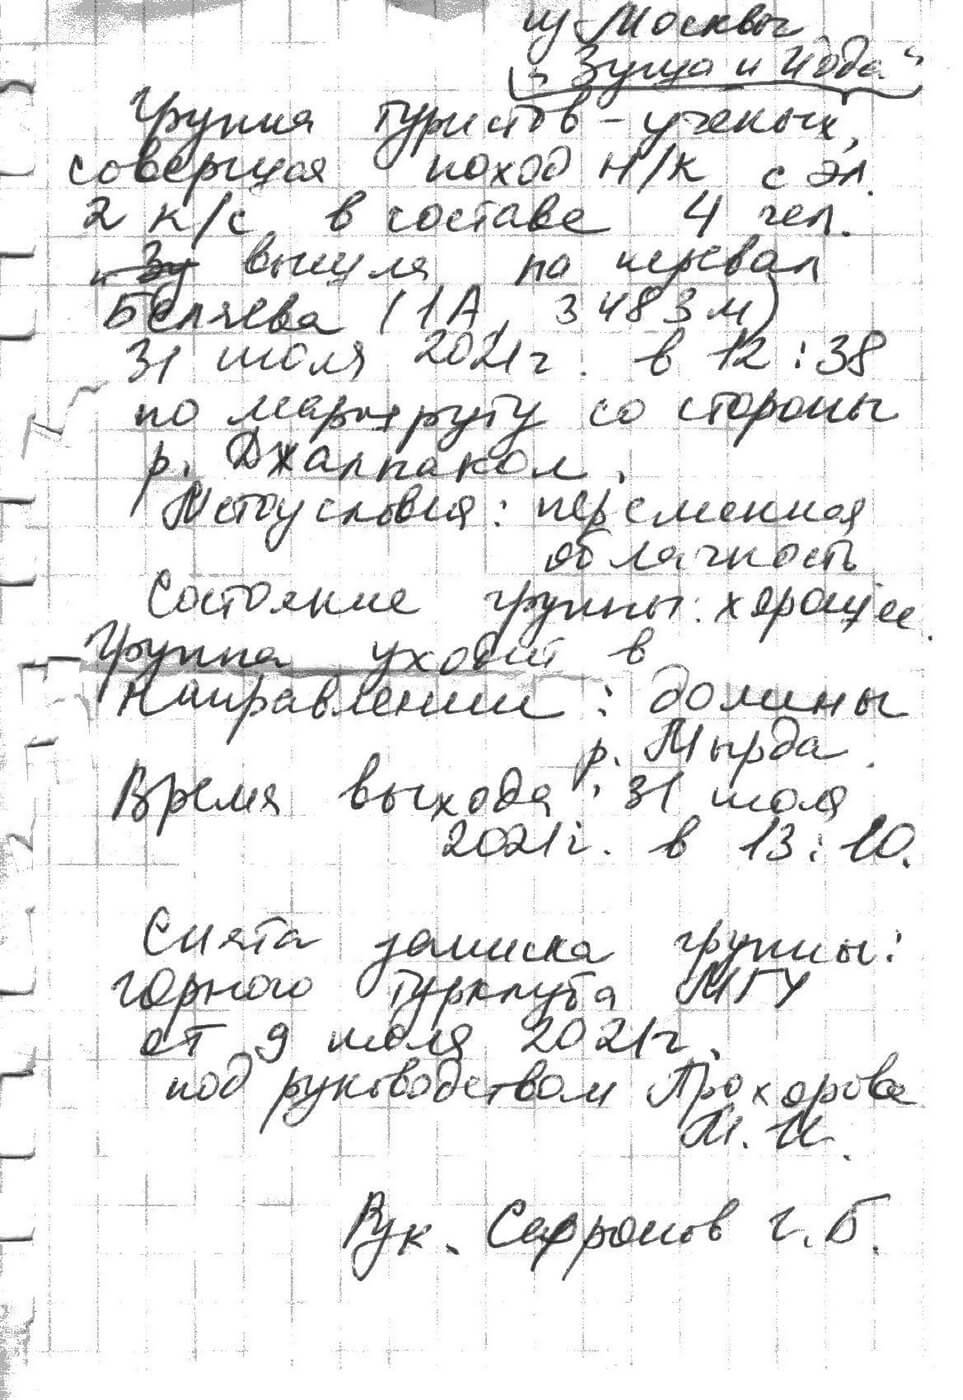 из Москвы
„Зуща и Йода"
Группа туристов-ученых,
совершая поход н/к с эл.
2 к/с в составе 4 чел.
„Зу вышла на перевал
Беляева (1А, 3483м)
31 июля 2021г. в 12:38
по маршруту со стороны
р. Джалпакол.
Метоусловия: переменная
облачность
Состояние группы: хорошее.
Группа уходит в
направлении: долины
р. Мырда.
Время выхода: 31 июля
2021г. в 13:10.
Снята записка группы:
горного турклуба МГУ
от 9 июля 2021г.
под руководством Прохорова
Рук. Сафронов Г.Б.